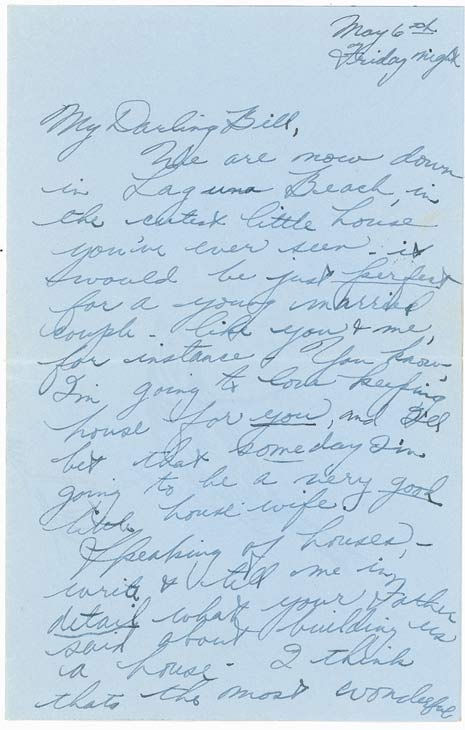 May 6th
Friday night
My Darling Bill,
We are now down
in Laguna Beach, in
the cutest little house
you've ever seen - it
would be just perfect
for a young married
couple - like you & me,
for instance! You know
I'm going to love keeping
house for you, and I'll
bet that someday I'm
going to be a very good
little house wife.
Speaking of houses, -
write & tell me in
detail what your Father
said about building us
a house - I think
thats the most wonderful